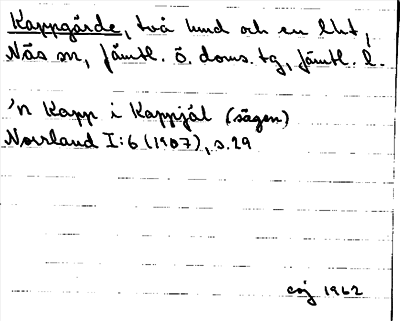 Kappgärde, två hmd och en lht,
Näs sn, Jämtl. ö. doms. tg, Jämtl. l.
'n Kapp i Kappjäl (sägen)
Norrland I:6 (1907), s. 29
1962